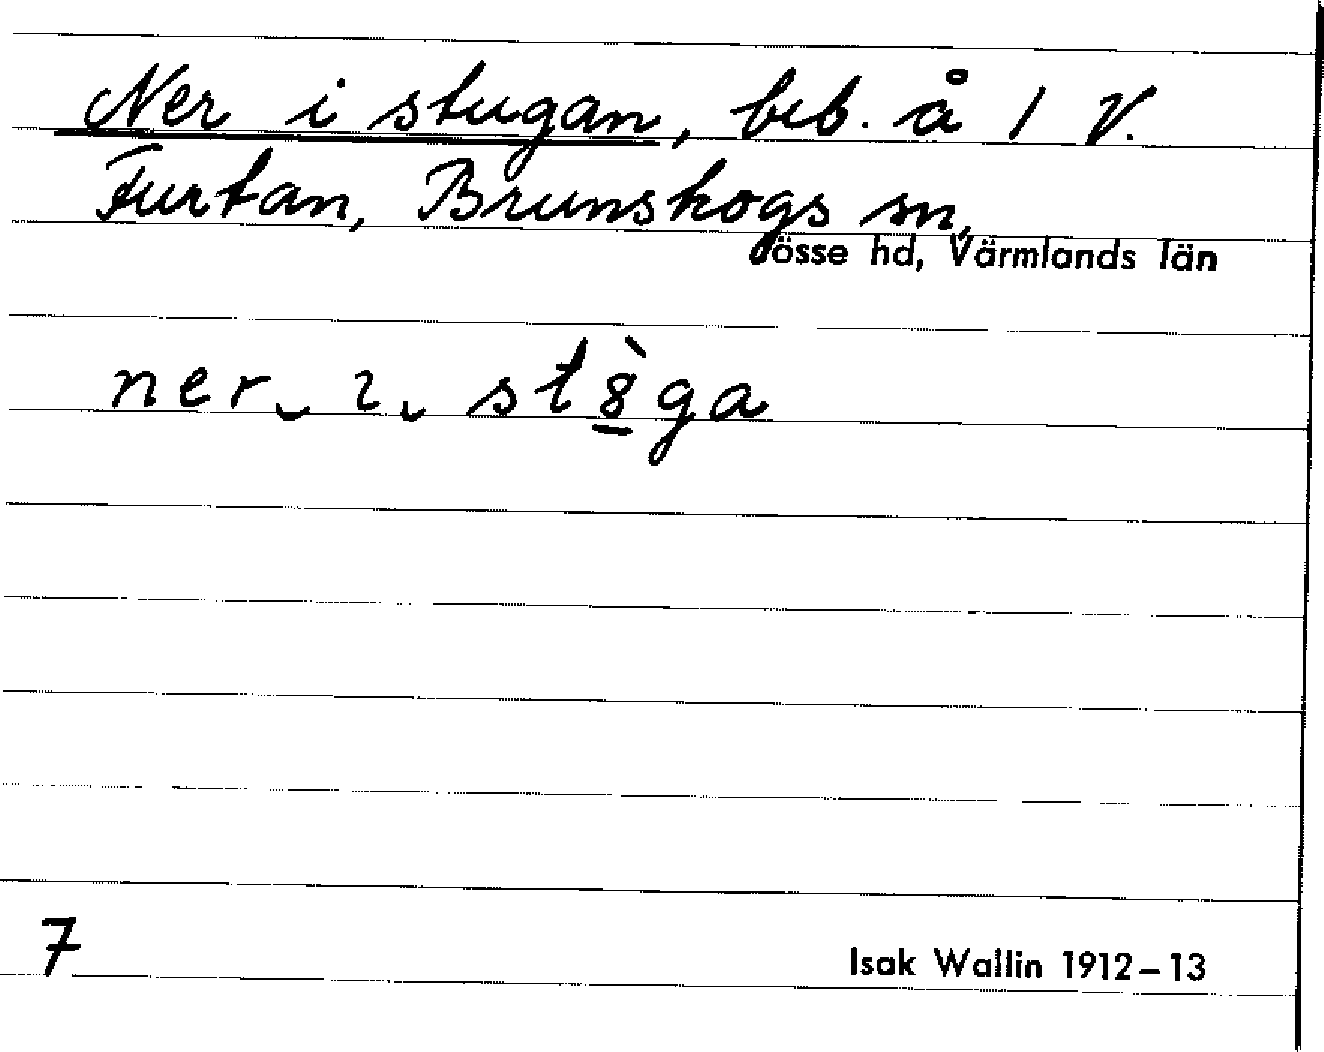 Ner i stugan, beb. å 1 V.
Furtan, Brunskogs sn,
Jösse hd, Värmlands län
ner‿ ɩ‿ st8̱̀ga
7
Isak Wallin 1912–13